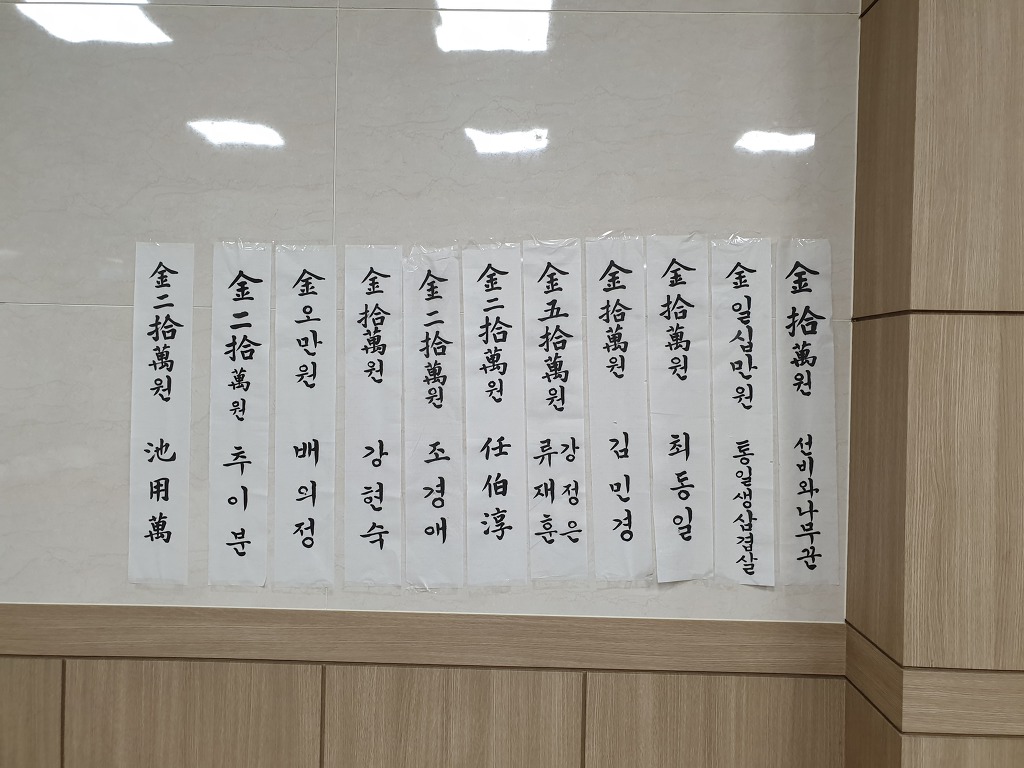 金拾萬원 선비와나무꾼
金일십만원 통일생삼겹살
金拾萬원 최동일
金拾萬원 김민경
金五拾萬원 강정은 류재훈
金二拾萬원 任伯淳
金二拾萬원 조경애
金拾萬원 강현숙
金오만원 배의정
金二拾萬원 추이분
金二拾萬원 池用萬